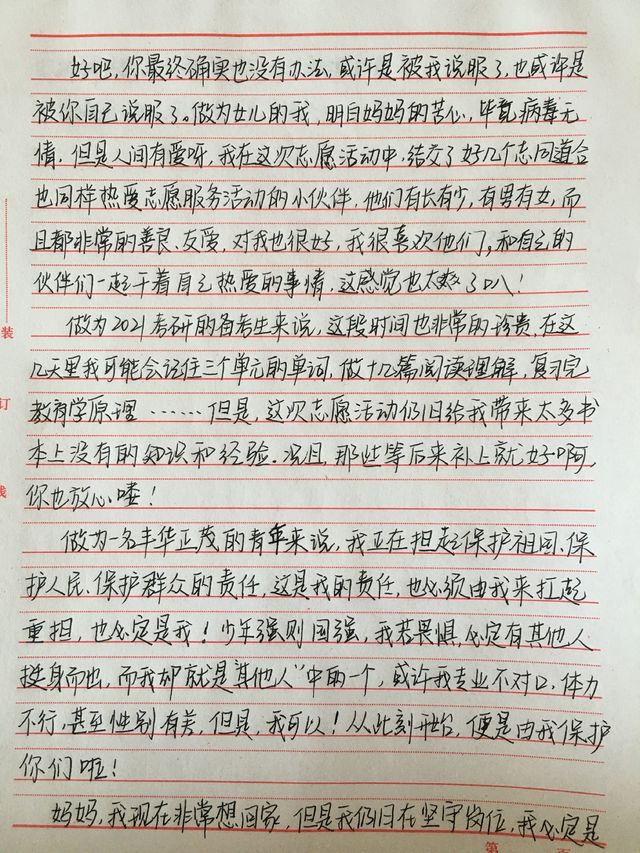 好吧，你最终确实也没有办法，或许是被我说服了，也或许是
被你自己说服了。做为女儿的我，明白妈妈的苦心，毕竟病毒无
情，但是人间有爱呀，我在这次志愿活动中，结交了好几个志同道合
也同样热爱志愿服务活动的小伙伴，他们有长有少，有男有女，而
且都非常的善良、友爱，对我也很好，我很喜欢他们，和自己的
伙伴们一起干着自己热爱的事情，这感觉也太爽了叭！
做为2021考研的备考生来说，这段时间也非常的珍贵，在这
几天里我可能会记住三个单元的单词，做十几篇阅读理解，复习完
教育学原理……但是，这次志愿活动仍旧给我带来太多书
本上没有的知识和经验。况且，那些等后来补上就好啊，
你也放心唾！
做为一名丰华正茂的青年来说，我正在担起保护祖国、保
护人民、保护群众的责任，这是我的责任，也必须由我来扛起
重担，也必定是我！少年强则国强，我若畏惧，必定有其他人
挺身而出，而我却就是“其他人”中的一个，或许我专业不对口、体力
不行、甚至性别有差，但是，我可以！从此刻开始，便是由我保护
你们啦！
妈妈，我现在非常想回家，但是我仍旧在坚守岗位，我必定是
装
订
线
第 页